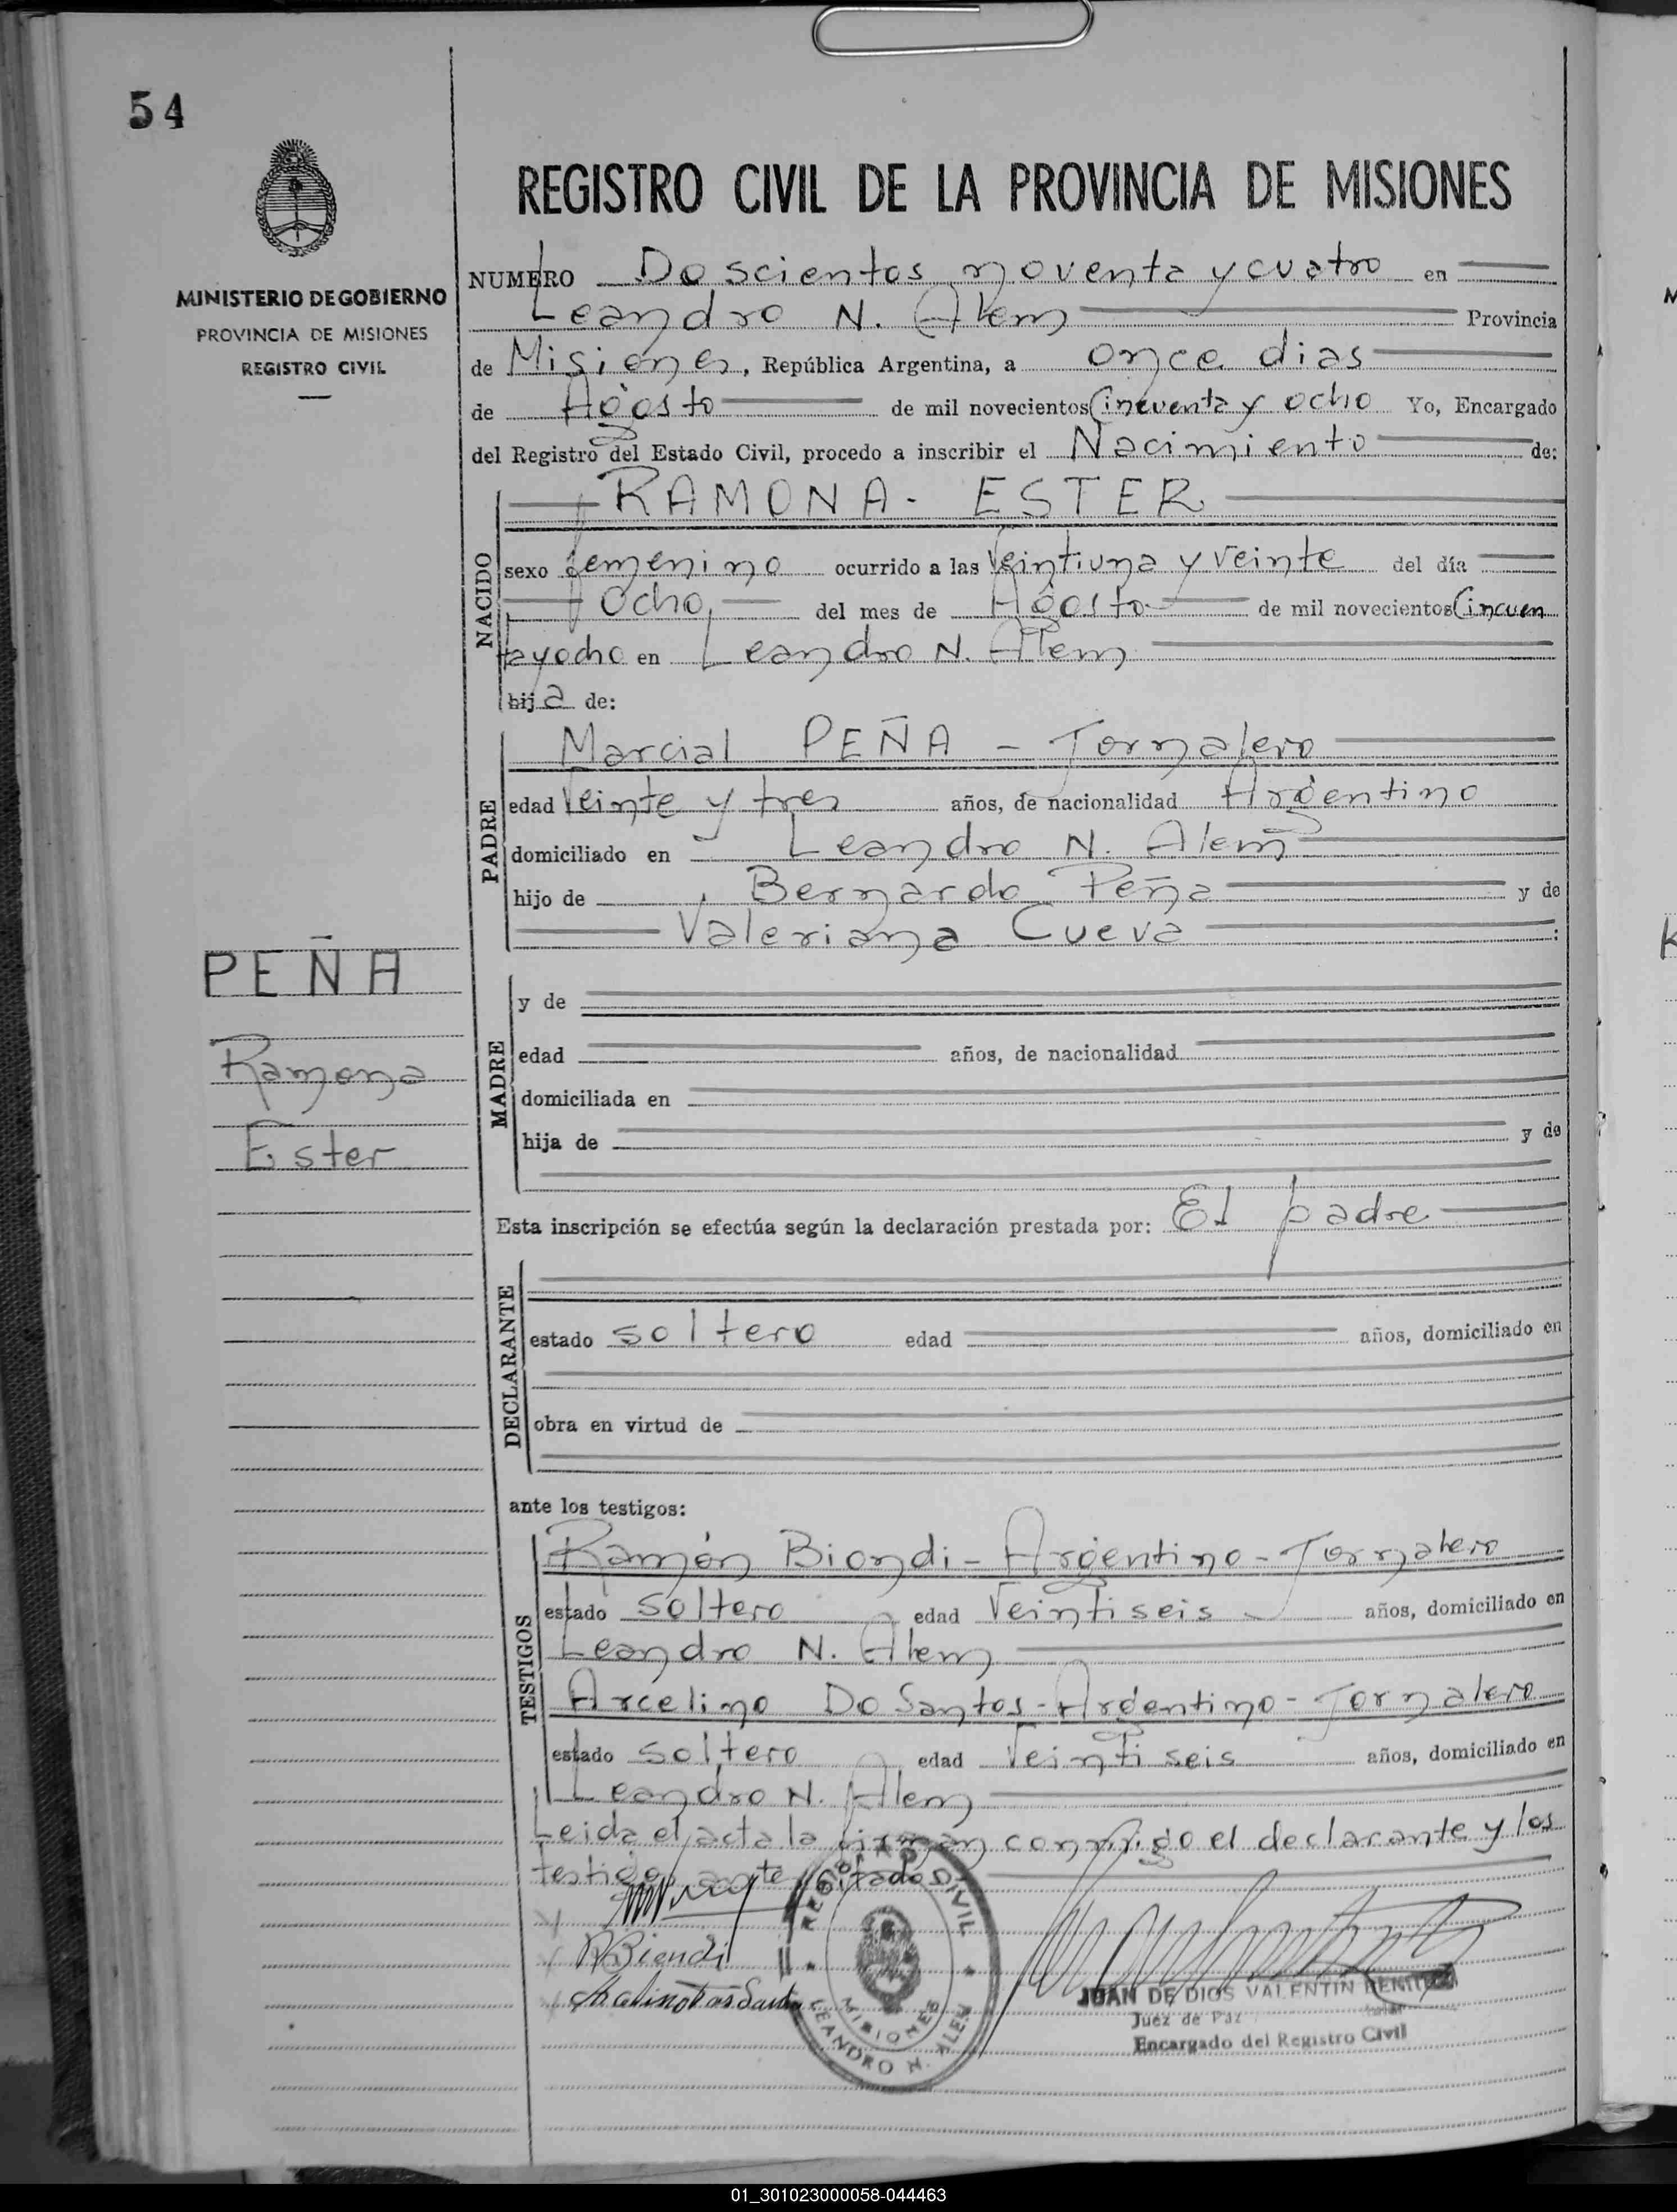 54
MINISTERIO DE GOBIERNO
PROVINCIA DE MISIONES
REGISTRO CIVIL
REGISTRO CIVIL DE LA PROVINCIA DE MISIONES
NUMERO Doscientos noventa y cuatro en
Leandro N. Alem Provincia
de Misiones, República Argentina, a once dias
de Agosto de mil novecientos Cincuenta y ocho Yo, Encargado
del Registro del Estado Civil, procedo a inscribir el Nacimiento de:
NACIDO
RAMONA - ESTER
sexo femenino ocurrido a las Veintiuna y veinte del día
Ocho, del mes de Agosto de mil novecientos Cincuen
ta y ocho en Leandro N. Alem
hija de:
PADRE
Marcial PEÑA - Jornalero
edad Veinte y tres años, de nacionalidad Argentino
domiciliado en Leandro N. Alem
hijo de Bernardo Peña y de
Valeriana Cueva :
PEÑA
Ramona
Ester
MADRE
y de
edad años, de nacionalidad
domiciliada en
hija de y de
Esta inscripción se efectúa según la declaración prestada por: El padre
DECLARANTE
estado soltero edad años, domiciliado en
obra en virtud de
ante los testigos:
TESTIGOS
Ramón Biondi - Argentino - Jornalero
estado soltero edad Veintiseis años, domiciliado en
Leandro N. Alem
Arcelino Do Santos - Argentino - Jornalero
estado soltero edad Veintiseis años, domiciliado en
Leandro N. Alem
Leida el acta la firman conmigo el declarante y los
testigos ante citados
R Biondi
REGISTRO CIVIL
MISIONES
LEANDRO N. ALEM
JUAN DE DIOS VALENTIN BENITEZ
Juez de Paz
Encargado del Registro Civil
01_301023000058-044463